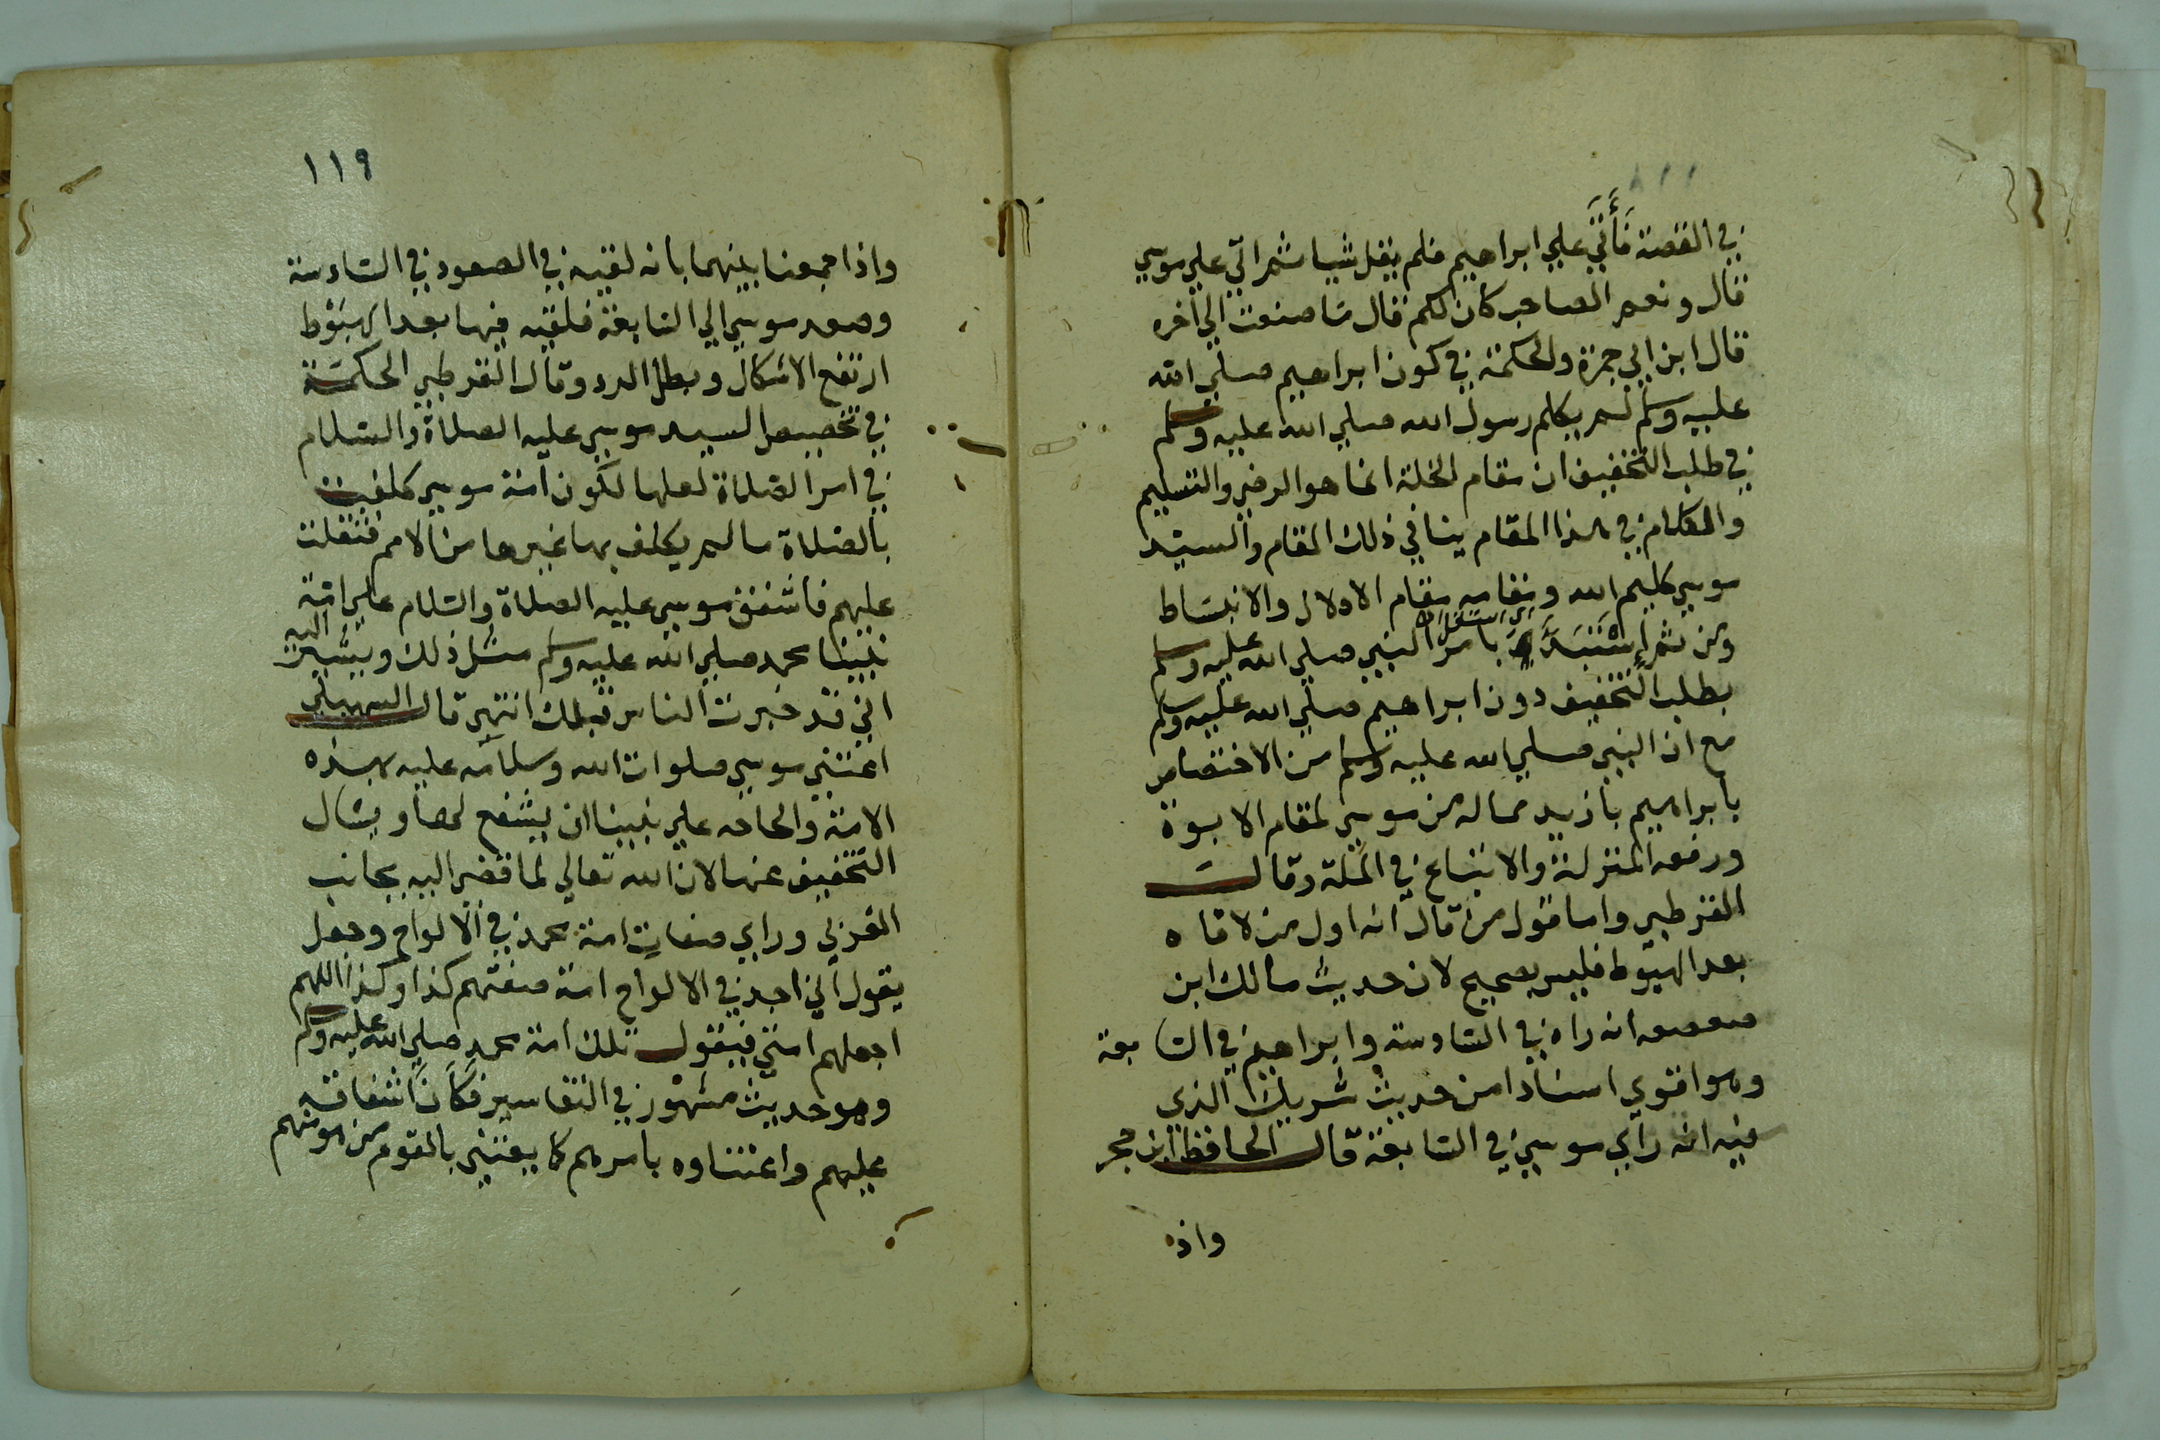 في القصة فَأَتَي علي ابراهيم فلم يقل شيا ثم اتي علي موسي
قال ونعم الصاحب كان لكم قال ما صنعت الي اخره
قال ابن ابي جمزة والحكمة في كون ابراهيم صلي الله
عليه وسلم لم يكلم رسول الله صلي الله عليه وسلم
في طلب التخفيف ان مقام الخلة انما هو الرضي والتسليم
والكلام في هذا المقام ينافي ذلك المقام والسيد
موسي كليم الله ومقامه مقام الادلال والانبساط
ومن ثم اسْتَبَدَّ بامر النبي صلي الله عليه وسلم
بطلب التخفيف دون ابراهيم صلي الله عليه وسلم
مع ان النبي صلي الله عليه وسلم من الاختصاص
بابراهيم بازيد مما له من موسي لمقام الابوة
ورفعه المنزلة والاتباع في الملة وقال
القرطبي واما قول من قال انه اول من لاقاه
بعد الهبوط فليس بصحيح لان حديث مالك ابن
صعصعه انه راه في السادسة وابراهيم في السابعة
وهو اقوي اسنادا من حديث شريك الذي
فيه انه راي موسي في السابعة قال الحافظ ابن حجر
واذا
١١٩
واذا جمعنا بينهما بانه لقيه في الصعود في السادسة
وصعد موسي الي السابعة فلقيه فيها بعد الهبوط
ارتفع الاشكال وبطل الرد وقال القرطبي الحكمة
في تخصيص السيد موسي عليه الصلاة والسلام
في امر الصلاة لعلها لكون امة موسي كلفت
بالصلاة ما لم يكلف بها غيرها من الامم فثقلت
عليهم فاشفق موسي عليه الصلاة والسلام علي امة
نبينا محمد صلي الله عليه وسلم مثل ذلك ويشير اليه
اني قد خبرت الناس قبلك انتهي قال السهيلي
اعتني موسي صلوات الله وسلامه عليه بهذه
الامة والحاحه علي نبينا ان يشفع لها ويسال
التخفيف عنها لان الله تعالي لما قضي اليه بجانب
الغربي وراي صفات امة محمد في الالواح وجعل
يقول اني اجد في الالواح امة صفتهم كذا وكذا اللهم
اجعلهم امتي فيقول تلك امة محمد صلي الله عليه وسلم
وهو حديث مشهور في التفاسير فكان اشفاقه
عليهم واعتناوه بامرهم كما يعتني بالقوم من هو منهم